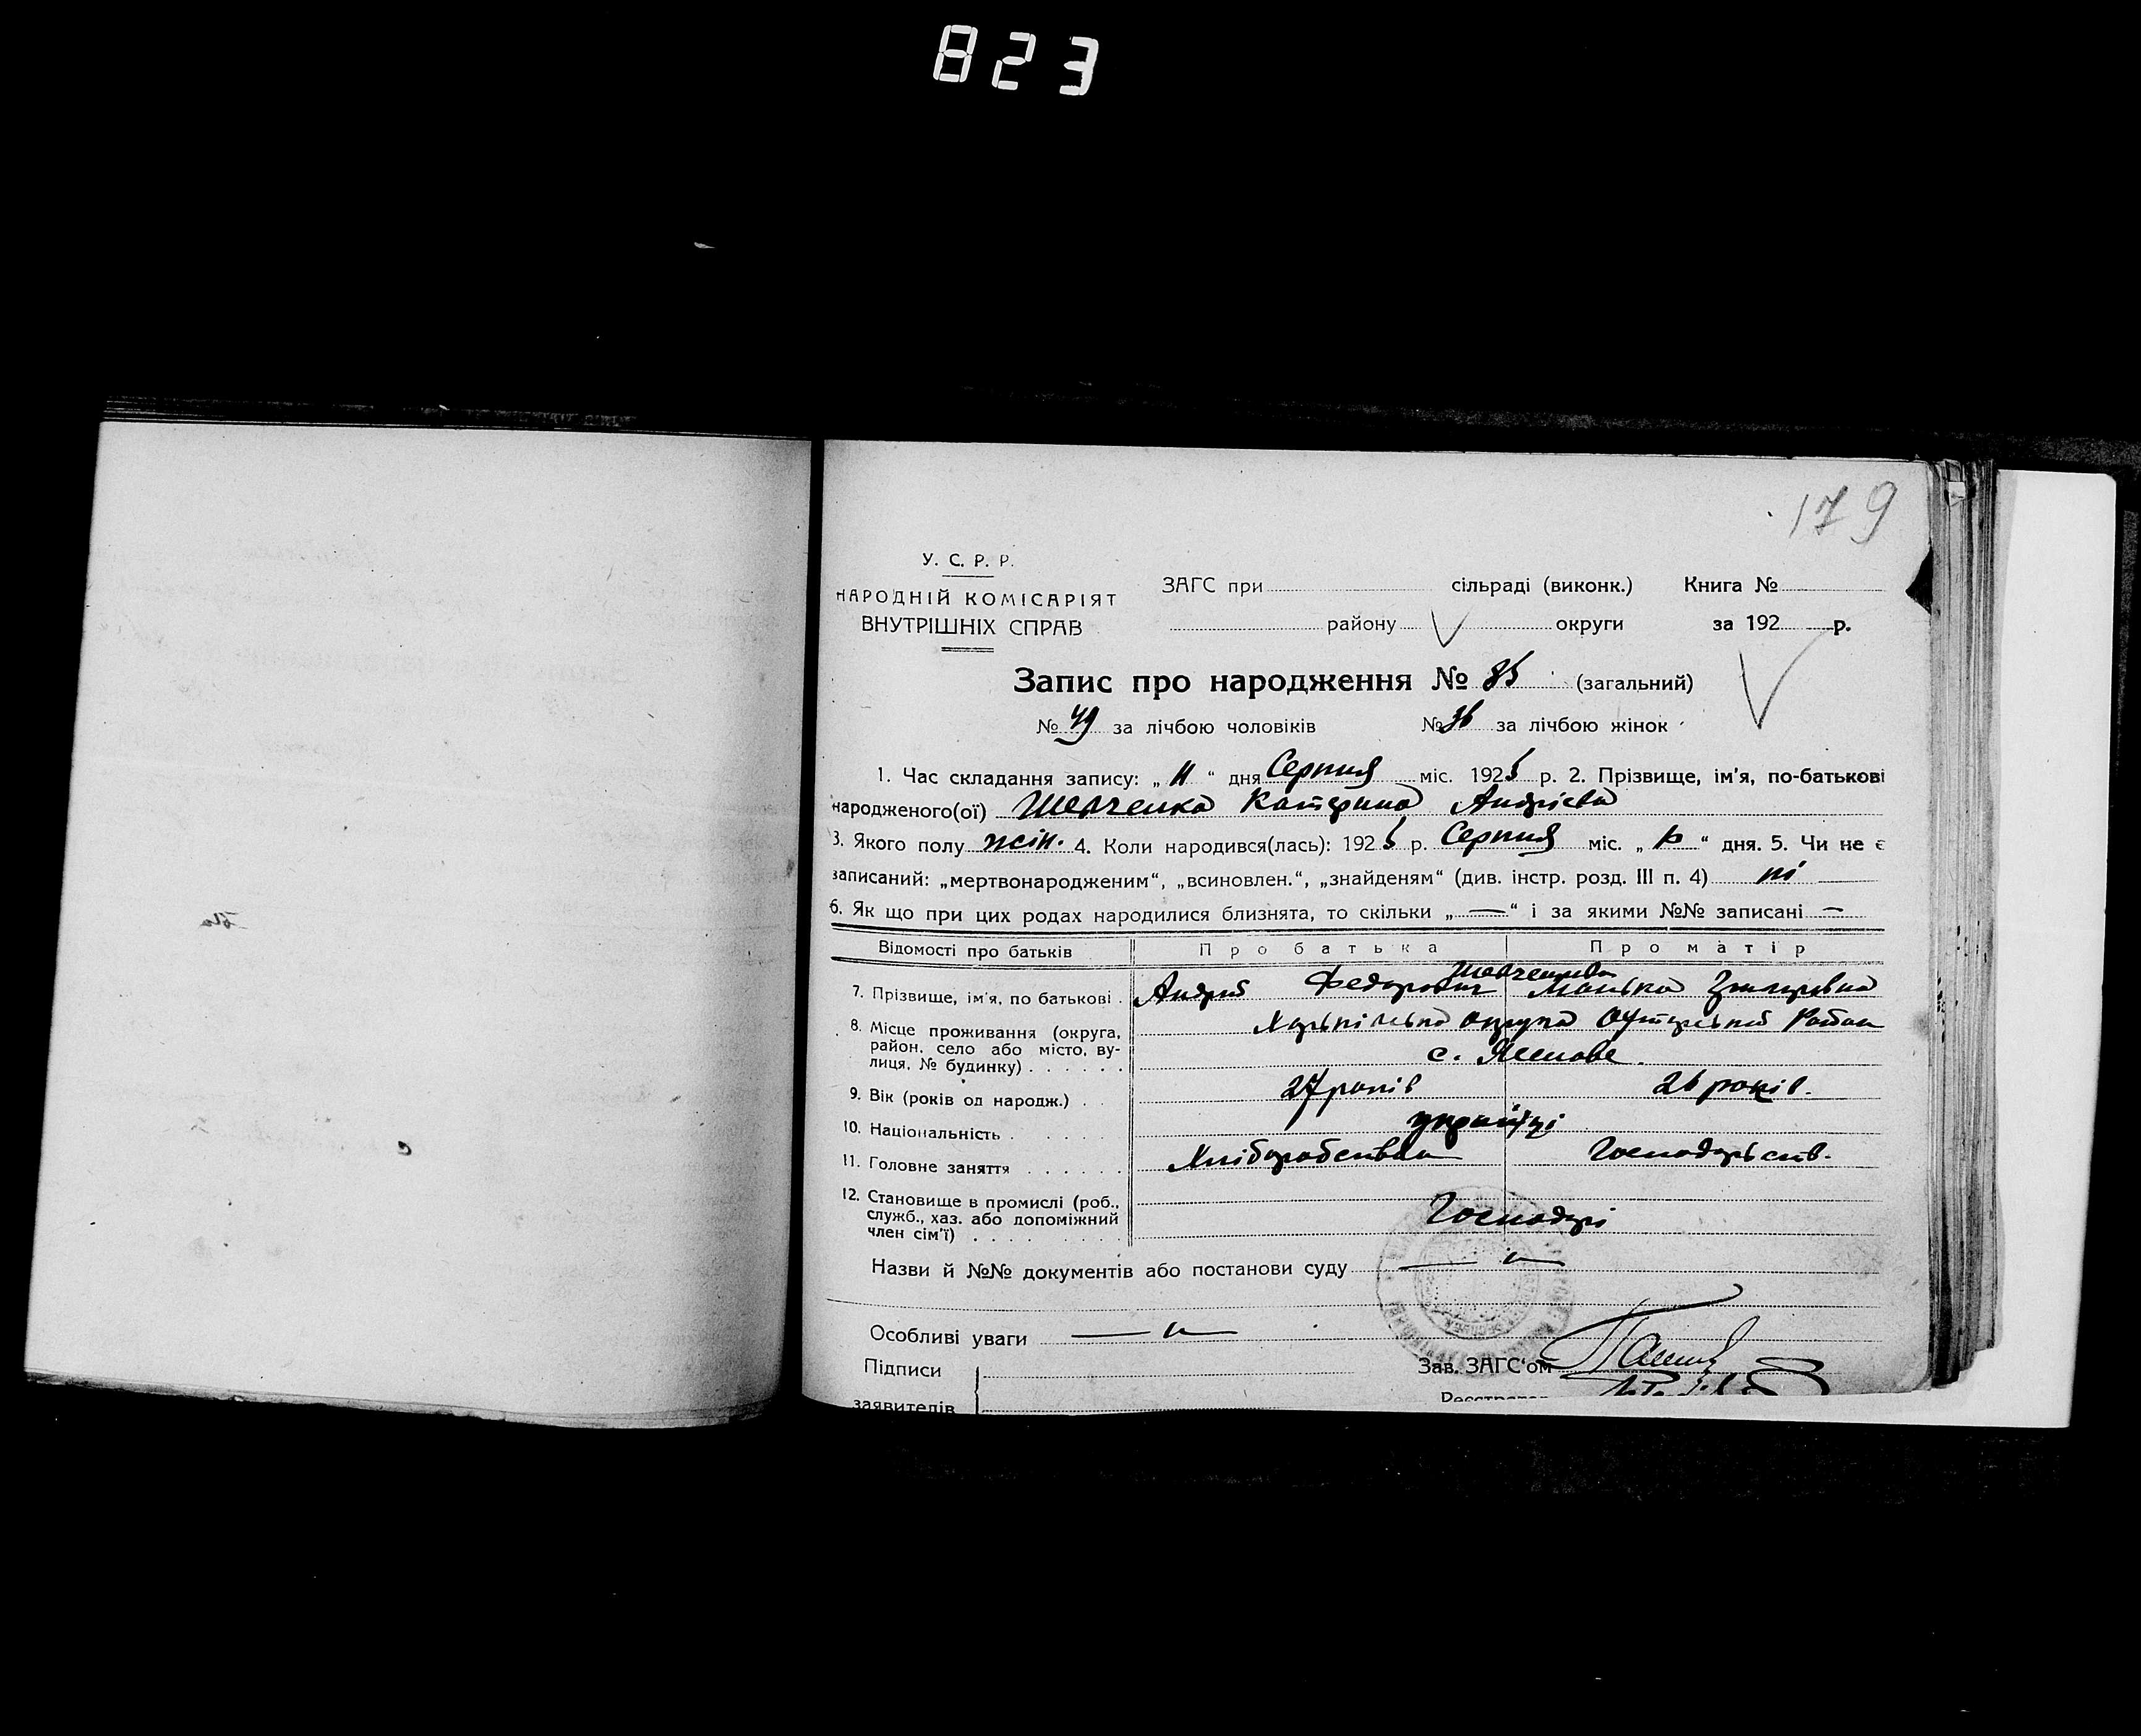 823
179
У. С. Р. Р.
НАРОДНІЙ КОМІСАРІЯТ
ВНУТРІШНІХ СПРАВ
ЗАГС при сільраді (виконк.) Книга №
району округи за 192 р.
Запис про народження № 85 (загальний)
№ 49 за лічбою чоловіків № 36 за лічбою жінок
1. Час складання запису: „ 11 “ дня Серпня міс. 1925 р. 2. Прізвище, ім'я, по-батькові
народженого(ої) Шевченко Катерина Андрієва
3. Якого полу жін. 4. Коли народився(лась): 1925 р. Серпня міс. „ 10 “ дня. 5. Чи не є
записаний: „мертвонародженим“, „всиновлен.“, „знайденям“ (див. інстр. розд. III п. 4) ні
6. Як що при цих родах народилися близнята, то скільки „ — “ і за якими №№ записані —
Відомості про батьків Про батька Про матір
Шевченкова
7. Прізвище, ім'я, по батькові . Андрій Федорович
8. Місце проживання (округа, район, село або місто, ву-
лиця, № будинку) . . . . . . Харківська округа Район
с.
9. Вік (років од народж.) . . 27 років 26 років.
10. Національність . . . . . українці
11. Головне заняття . . . . . . Хліборобство Господарств.
12. Становище в промислі (роб.,
служб., хаз. або допоміжний
член сім'ї) . . . . . . . . Господарі
Назви й №№ документів або постанови суду — " —
Особливі уваги — " —
Підписи Зав. ЗАГС'ом
заявителів